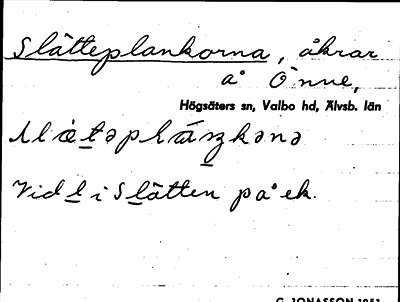 Slätteplankorna, åkrar
å Önne,
Högsäters sn, Valbo hd, Älvsb. län
Vid l i Slätten på ek.
G. JONASSON 1951